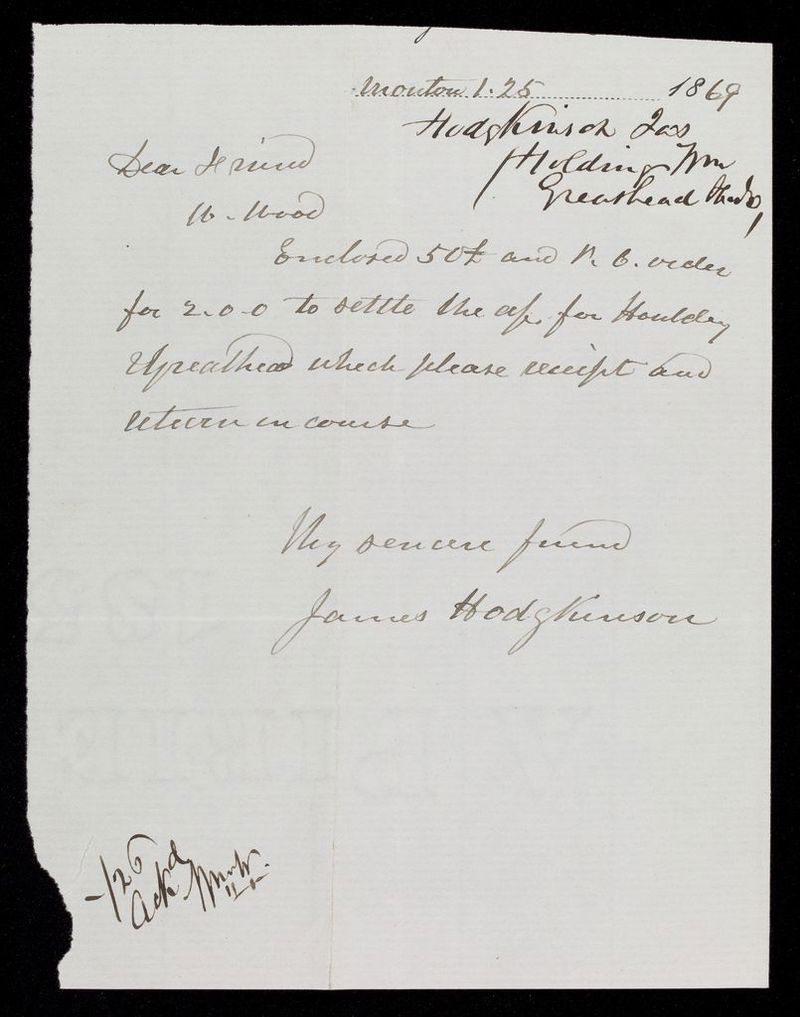 Monton 1.25 1869
Hodgkinson Jas
Holding Wm
Greathead
Dear Friend
W. Wood
Enclosed 50£ and P. O. order
for 2-0-0 to settle the a/c. for Houlding
& Greathead which please receipt and
return in course
Thy sencere friend
James Hodgkinson
-/26
Ackd